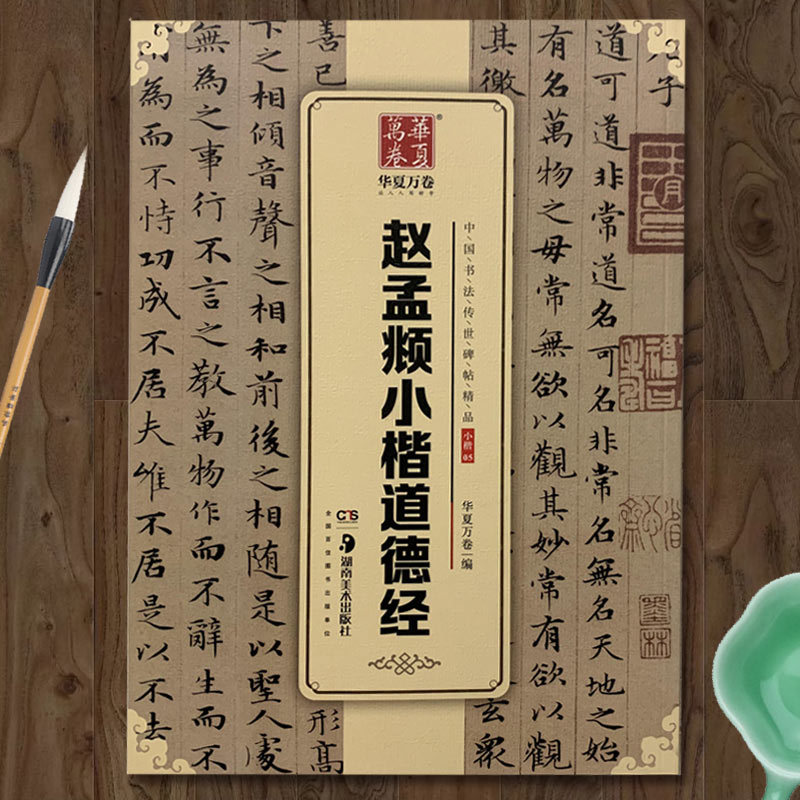 子
道可道非常道名可名非常名無名天地之始
有名萬物之母常無欲以觀其妙常有欲以觀
其徼
玄眾
華夏
萬卷
®
华夏万卷
让人人写好字
中国书法传世碑帖精品
小楷
05
华夏万卷 编
赵孟頫小楷道德经
湖南美术出版社
全国百佳图书出版单位
善已
形高
下之相傾音聲之相和前後之相随是以聖人處
無為之事行不言之教萬物作而不辭生而不
為而不恃功成不居夫唯不居是以不去
墨林